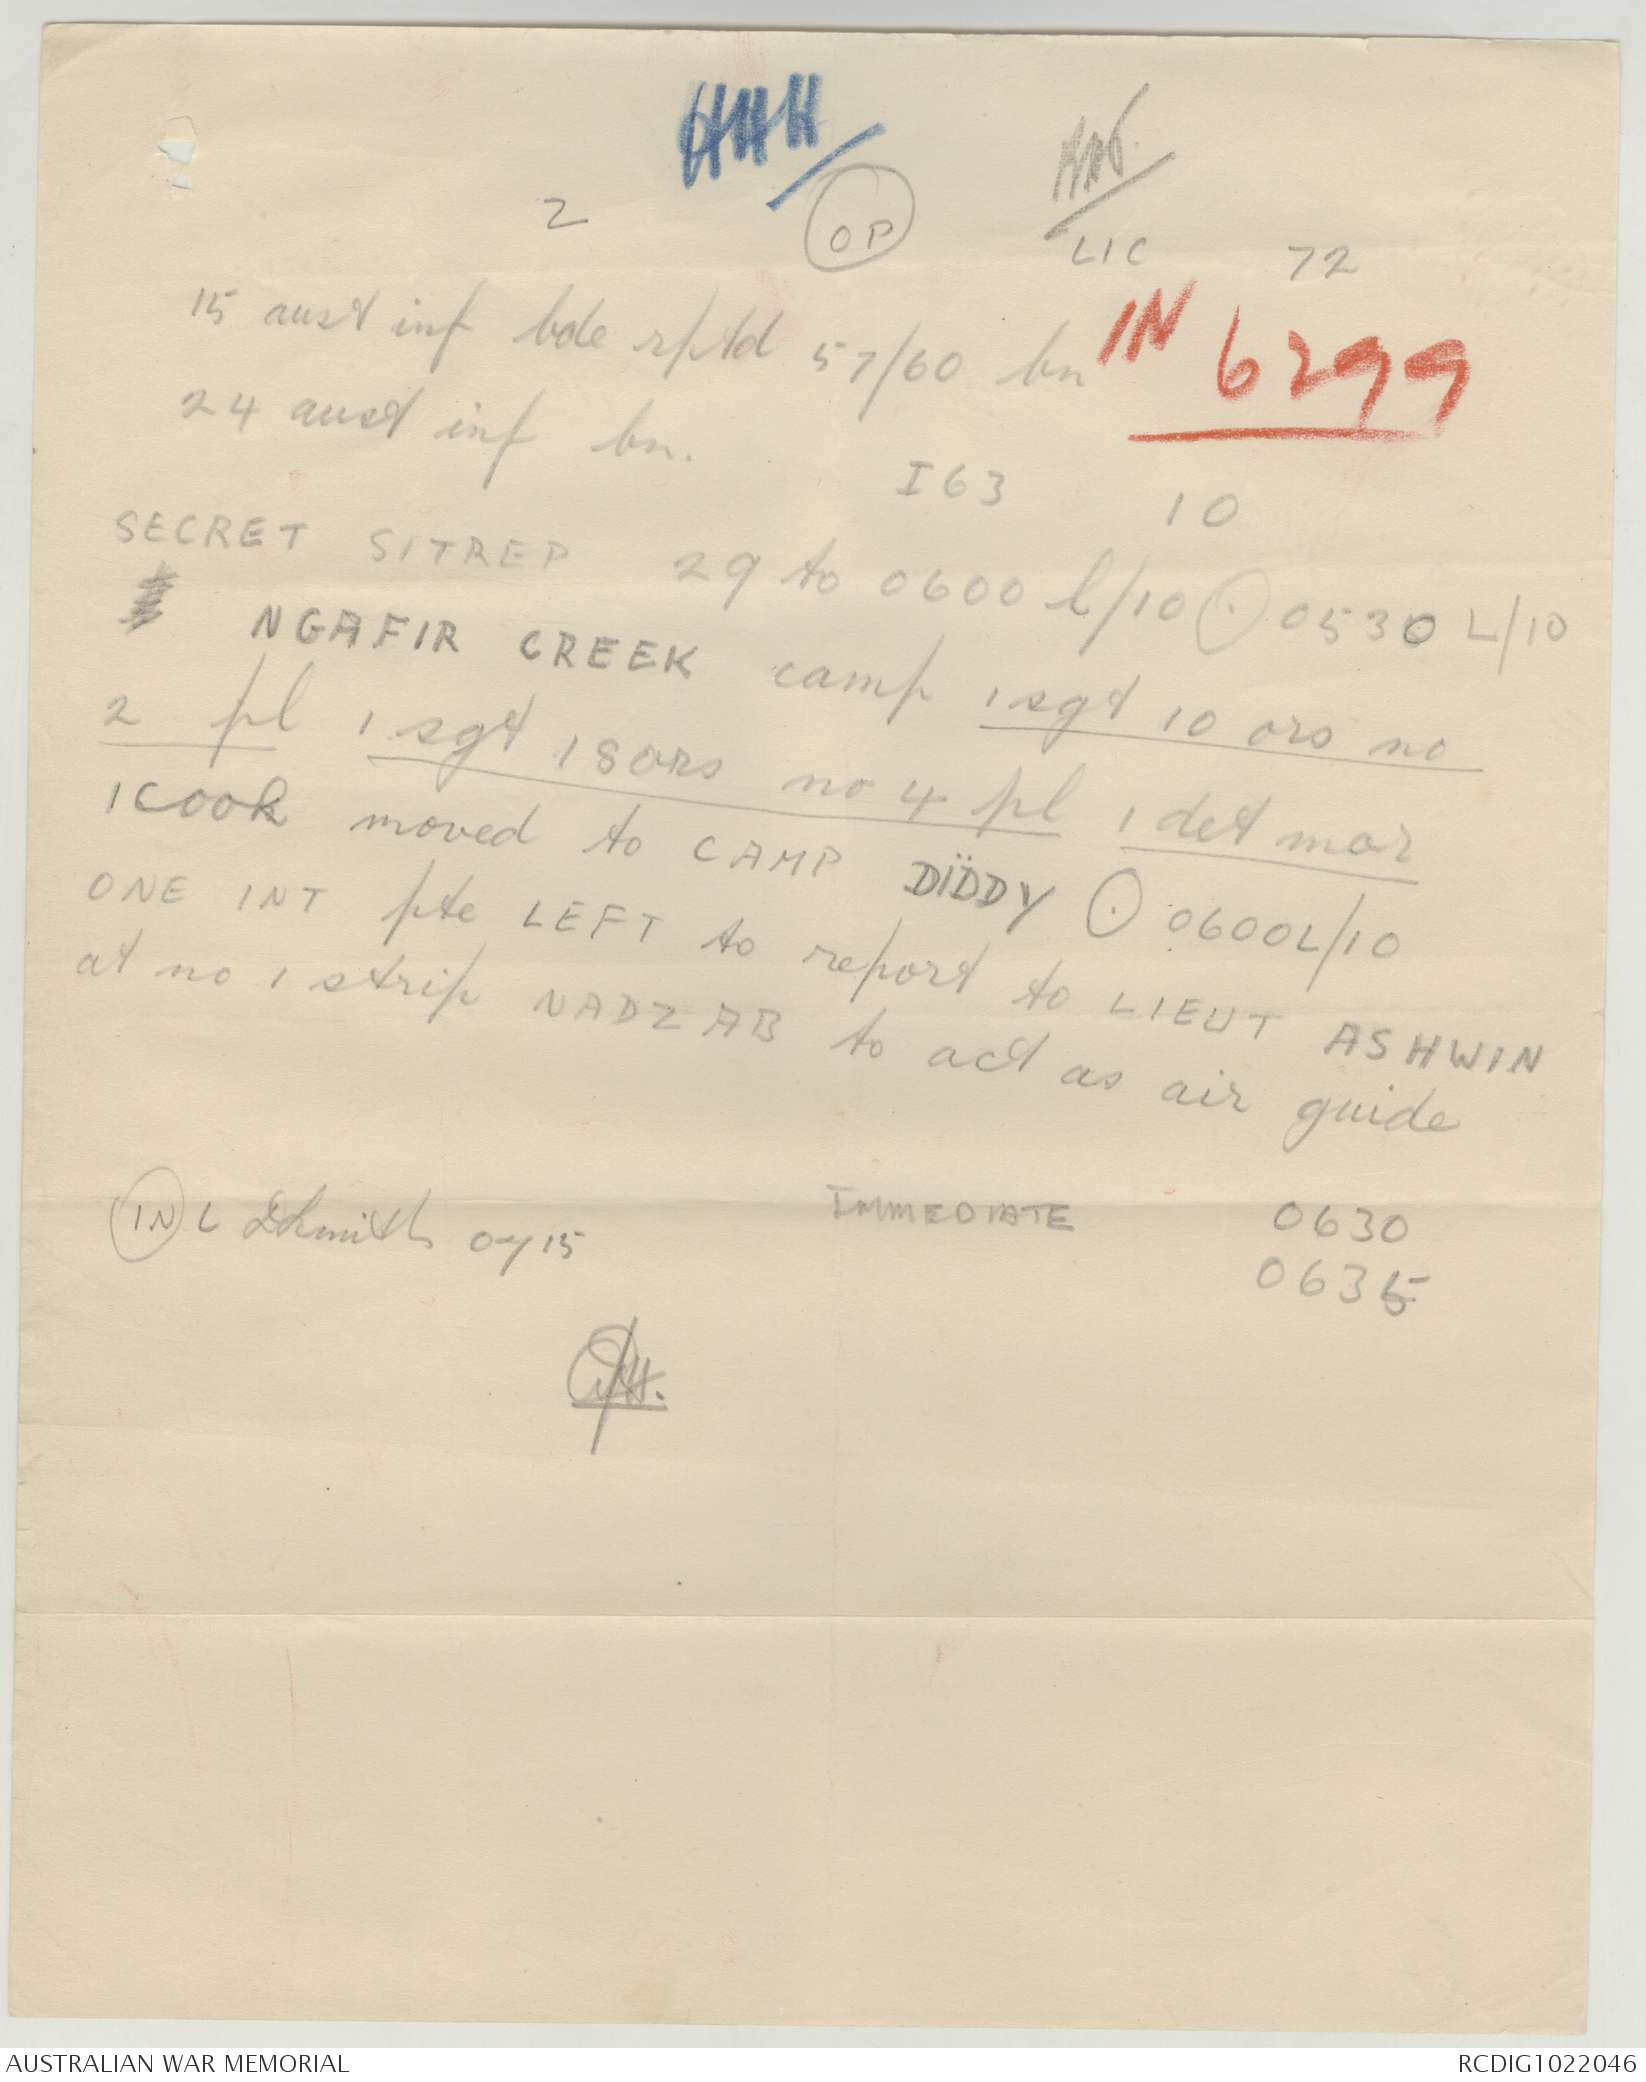 2 OP LIC 72
15 aust inf bde rptd 57/60 bn IN 6299
24 aust inf bn.
I63 10
SECRET SITREP 29 to 0600 l/10 ⊙ 0530 L/10
NGAFIR CREEK camp 1 sgt 10 ors no
2 pl 1 sgt 18 ors no 4 pl 1 det mor
1 COOK moved to CAMP DIDDY ⊙ 0600L/10
ONE INT pte LEFT to report to LIEUT ASHWIN
at no 1 strip NADZAB to act as air guide
IN L Smith 0715 IMMEDIATE 0630
0635
AUSTRALIAN WAR MEMORIAL RCDIG1022046